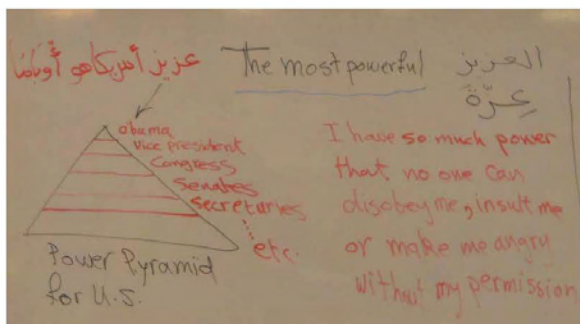 عزيز أمريكا هو أوباما
The most powerful
العزيز
عِزّة
obama
Vice president
Congress
Senates
Secretaries
etc.
Power Pyramid
for U.S.
I have so much power
that no one can
disobey me, insult me
or make me angry
without my permission